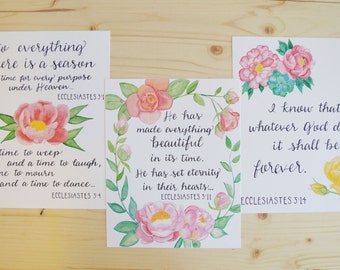 To everything
there is a season
time for every purpose
under Heaven...
ECCLESIASTES 3:1
time to weep
and a time to laugh,
time to mourn
and a time to dance...
ECCLESIASTES 3:4
He has
made everything
beautiful
in its time.
He has set eternity
in their hearts...
ECCLESIASTES 3:11
I know that
whatever God d
it shall be
forever.
ECCLESIASTES 3:14